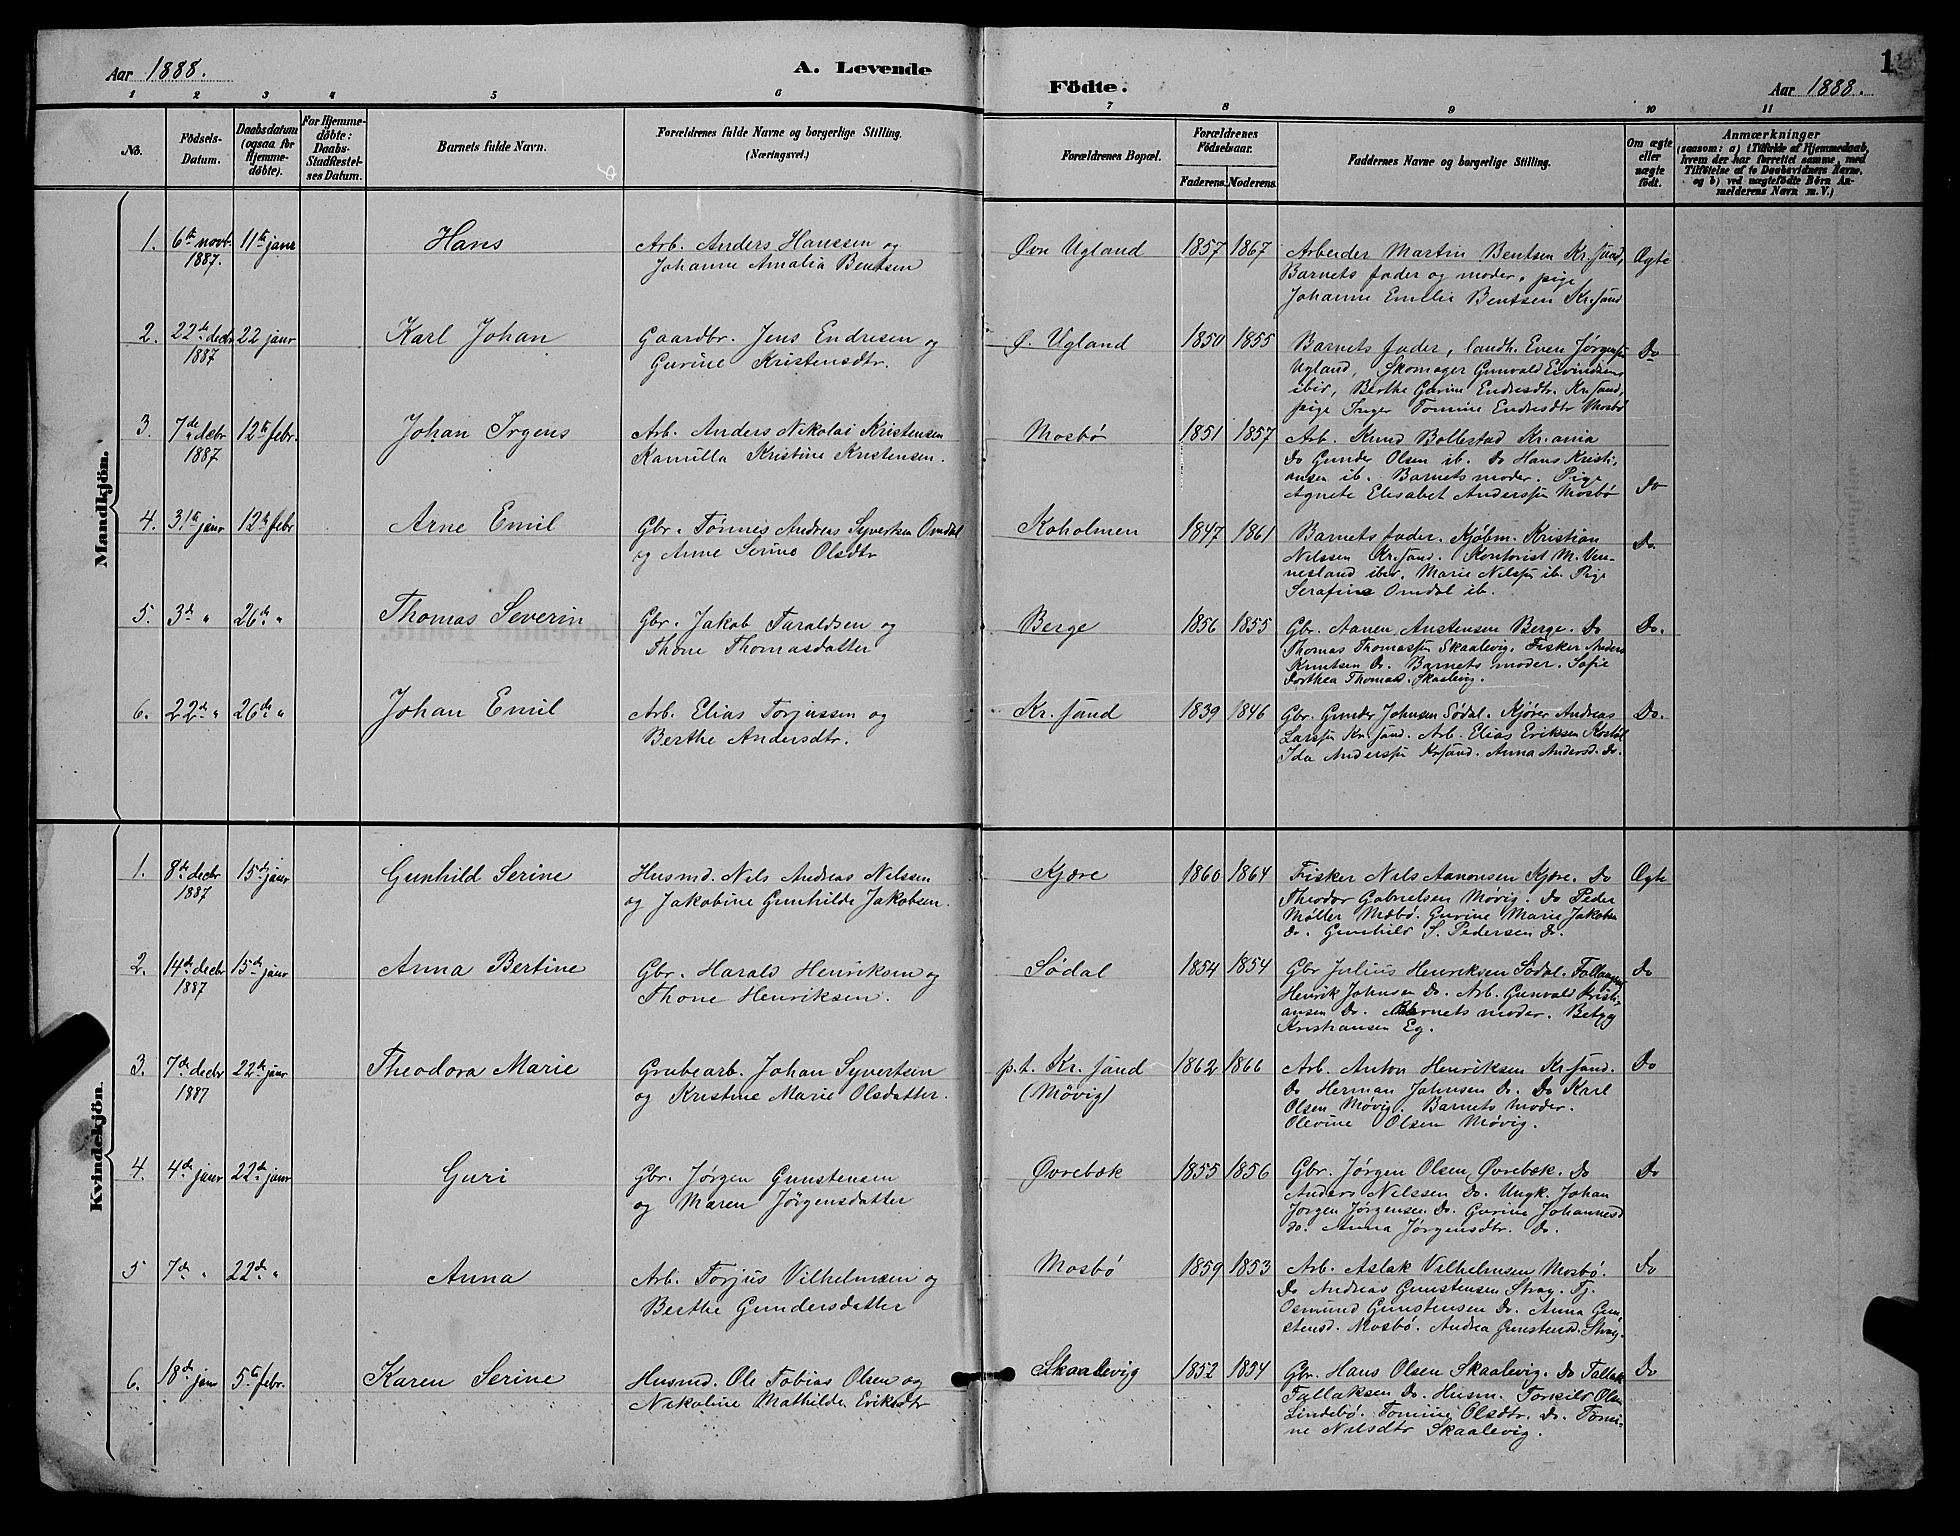 Aar 1888.
A. Levende
Födte.
Aar 1888.
1
1 2 3 4 5 6 7 8 9 10 11
No.
Födsels-
Datum.
Daabsdatum
(ogsaa for
Hjemme-
döbte).
For Hjemme-
döbte:
Daabs-
Stadfestel-
ses Datum.
Barnets fulde Navn.
Forældrenes fulde Navne og borgerlige Stilling.
(Næringsvei.)
Forældrenes Bopæl.
Forældrenes
Födselsaar.
Faderens. Moderens.
Faddernes Navne og borgerlige Stilling.
Om ægte
eller
uægte
födt.
Anmærkninger
(saasom: a) i Tilfælde af Hjemmedaab,
hvem der har forrettet samme, med
Tilföielse af to Daabsvidners Navne,
og b) ved uægtefödte Börn An-
melderens Navn m. V.)
Mandkjön.
1. 6te novbr 1887. 11te janr Hans
Arb. Anders Hanssen og
Johanne Amalia Bentsen
Øvre Ugland 1857 1867
Arbeider Martin Bentsen Kr.sand,
Barnets fader og moder, pige
Johanne Emilie Bentsen Kr.sand
Ægte
2. 22de decbr 1887 22 janr Karl Johan
Gaardbr. Jens Endresen og
Gurine Kristensdtr.
Ø. Ugland 1850 1855
Barnets fader, landh. Even Jørgensen
Ugland, Skomager Gunvald Eivindsen
ibid, Berthe Gurine Endresdtr. Kr.sand,
pige Inger Tomine Endresdtr Mosbø
Do
3. 7de decbr 1887 12te febr. Johan Irgens
Arb. Anders Nikolai Kristensen
Kamilla Kristine Kristensen.
Mosbø 1851 1857
Arb. Knud Bollestad Kr.ania
Do Gunder Olsen ib. Do Hans Kristi-
ansen ib. Barnets moder. Pige
Agnete Elisabet Anderssen Mosbø
Do
4. 31te janr 12te febr Arne Emil
Gbr. Tønnes Andreas Syvertsen Omdal
og Anne Serine Olsdtr
Koholmen 1847 1861
Barnets fader. Kjøbm. Kristian
Nilssen Kr.sand. Kontorist M. Ven-
nesland iber. Marie Nilssen ib. Pige
Serafine Omdal ib.
Do.
5. 3de " 26de " Thomas Severin
Gbr. Jakob Taraldsen og
Thone Thomasdatter
Berge 1856 1855
Gbr. Aanen Anstensen Berge. Do
Thomas Thomassen Skaalevig. Fisker Anders
Knutsen Do. Barnets moder. Sofie
Dorthea Thomasd. Skaalevig.
Do.
6. 22de " 26de " Johan Emil
Arb. Elias Torjussen og
Berthe Andersdtr.
Kr.sand 1839 1846
Gbr. Gunder Johnsen Sødal. Kjører Andreas
Larssen Kr.sand. Arb. Elias Eriksen
Ida Anderssen Kr.sand. Anna Andersd. Do.
Do.
Kvindekjön.
1. 8de decbr 1887 15de janr Gunhild Serine
Husmd. Nils Andreas Nilssen
og Jakobine Gunhilde Jakobsen.
Kjære 1860 1864
Fisker Nils Aanonsen Kjære. Do
Theodor Gabrielsen Møvig. Do Peder
Møller Mæbø. Gurine Marie Jakobsen
Do. Gunhild S. Pedersen Do.
Ægte
2. 14de decbr 1887 15de janr Anna Bertine
Gbr. Harald Henriksen og
Thone Henriksen.
Sødal 1854 1854
Gbr Julius Henriksen Sødal.
Henrik Johnsen Do. Arb. Gunvald Kristi-
ansen Do. Barnets moder. Betzy
Kristiansen Eg.
Do
3. 7de decbr 1887 22de janr Theodora Marie
Grubearb. Johan Syvertsen
og Kristine Marie Olsdatter.
p.t. Kr.sand (Møvig) 1862 1866
Arb. Anton Henriksen Kr.sand.
Do Herman Johnsen Do. Do Karl
Olsen Møvig. Barnets moder.
Olevine Olsen Møvig.
Do
4. 4de janr 22de janr Guri
Gbr. Jørgen Gunstensen
og Maren Jörgensdatter
Øvrebæk 1855 1856
Gbr. Jørgen Olsen Øvrebæk. Do
Anders Nilssen Do. Ungk. Johan
Jørgen Jørgensen. Do. Gurine Johannesd
do. Anna Jørgensdtr. Do.
Do
5 7de " 22de " Anna
Arb. Torjus Vilhelmsen og
Berthe Gundersdatter
Mosbø 1859 1853
Arb. Aslak Vilhelmsen Mosbø.
Do Andreas Gunstensen Stray. Tj.
Osmund Gunstensen Do. Anna Gun-
stensd. Mosbø. Andrea Gunstensd. Stray.
Do
6. 18de janr 5te febr. Karen Serine
Husmd. Ole Tobias Olsen og
Nikoline Mathilde Eriksdtr
Skaalevig 1852 1854
Gbr. Hans Olsen Skaalevig. Do Tallak
Tallaksen Do. Husm. Torkild Olsen
Lindebø. Tomine Olsdtr. Do. Tomi-
ne Nilsdtr Skaalevig.
Do